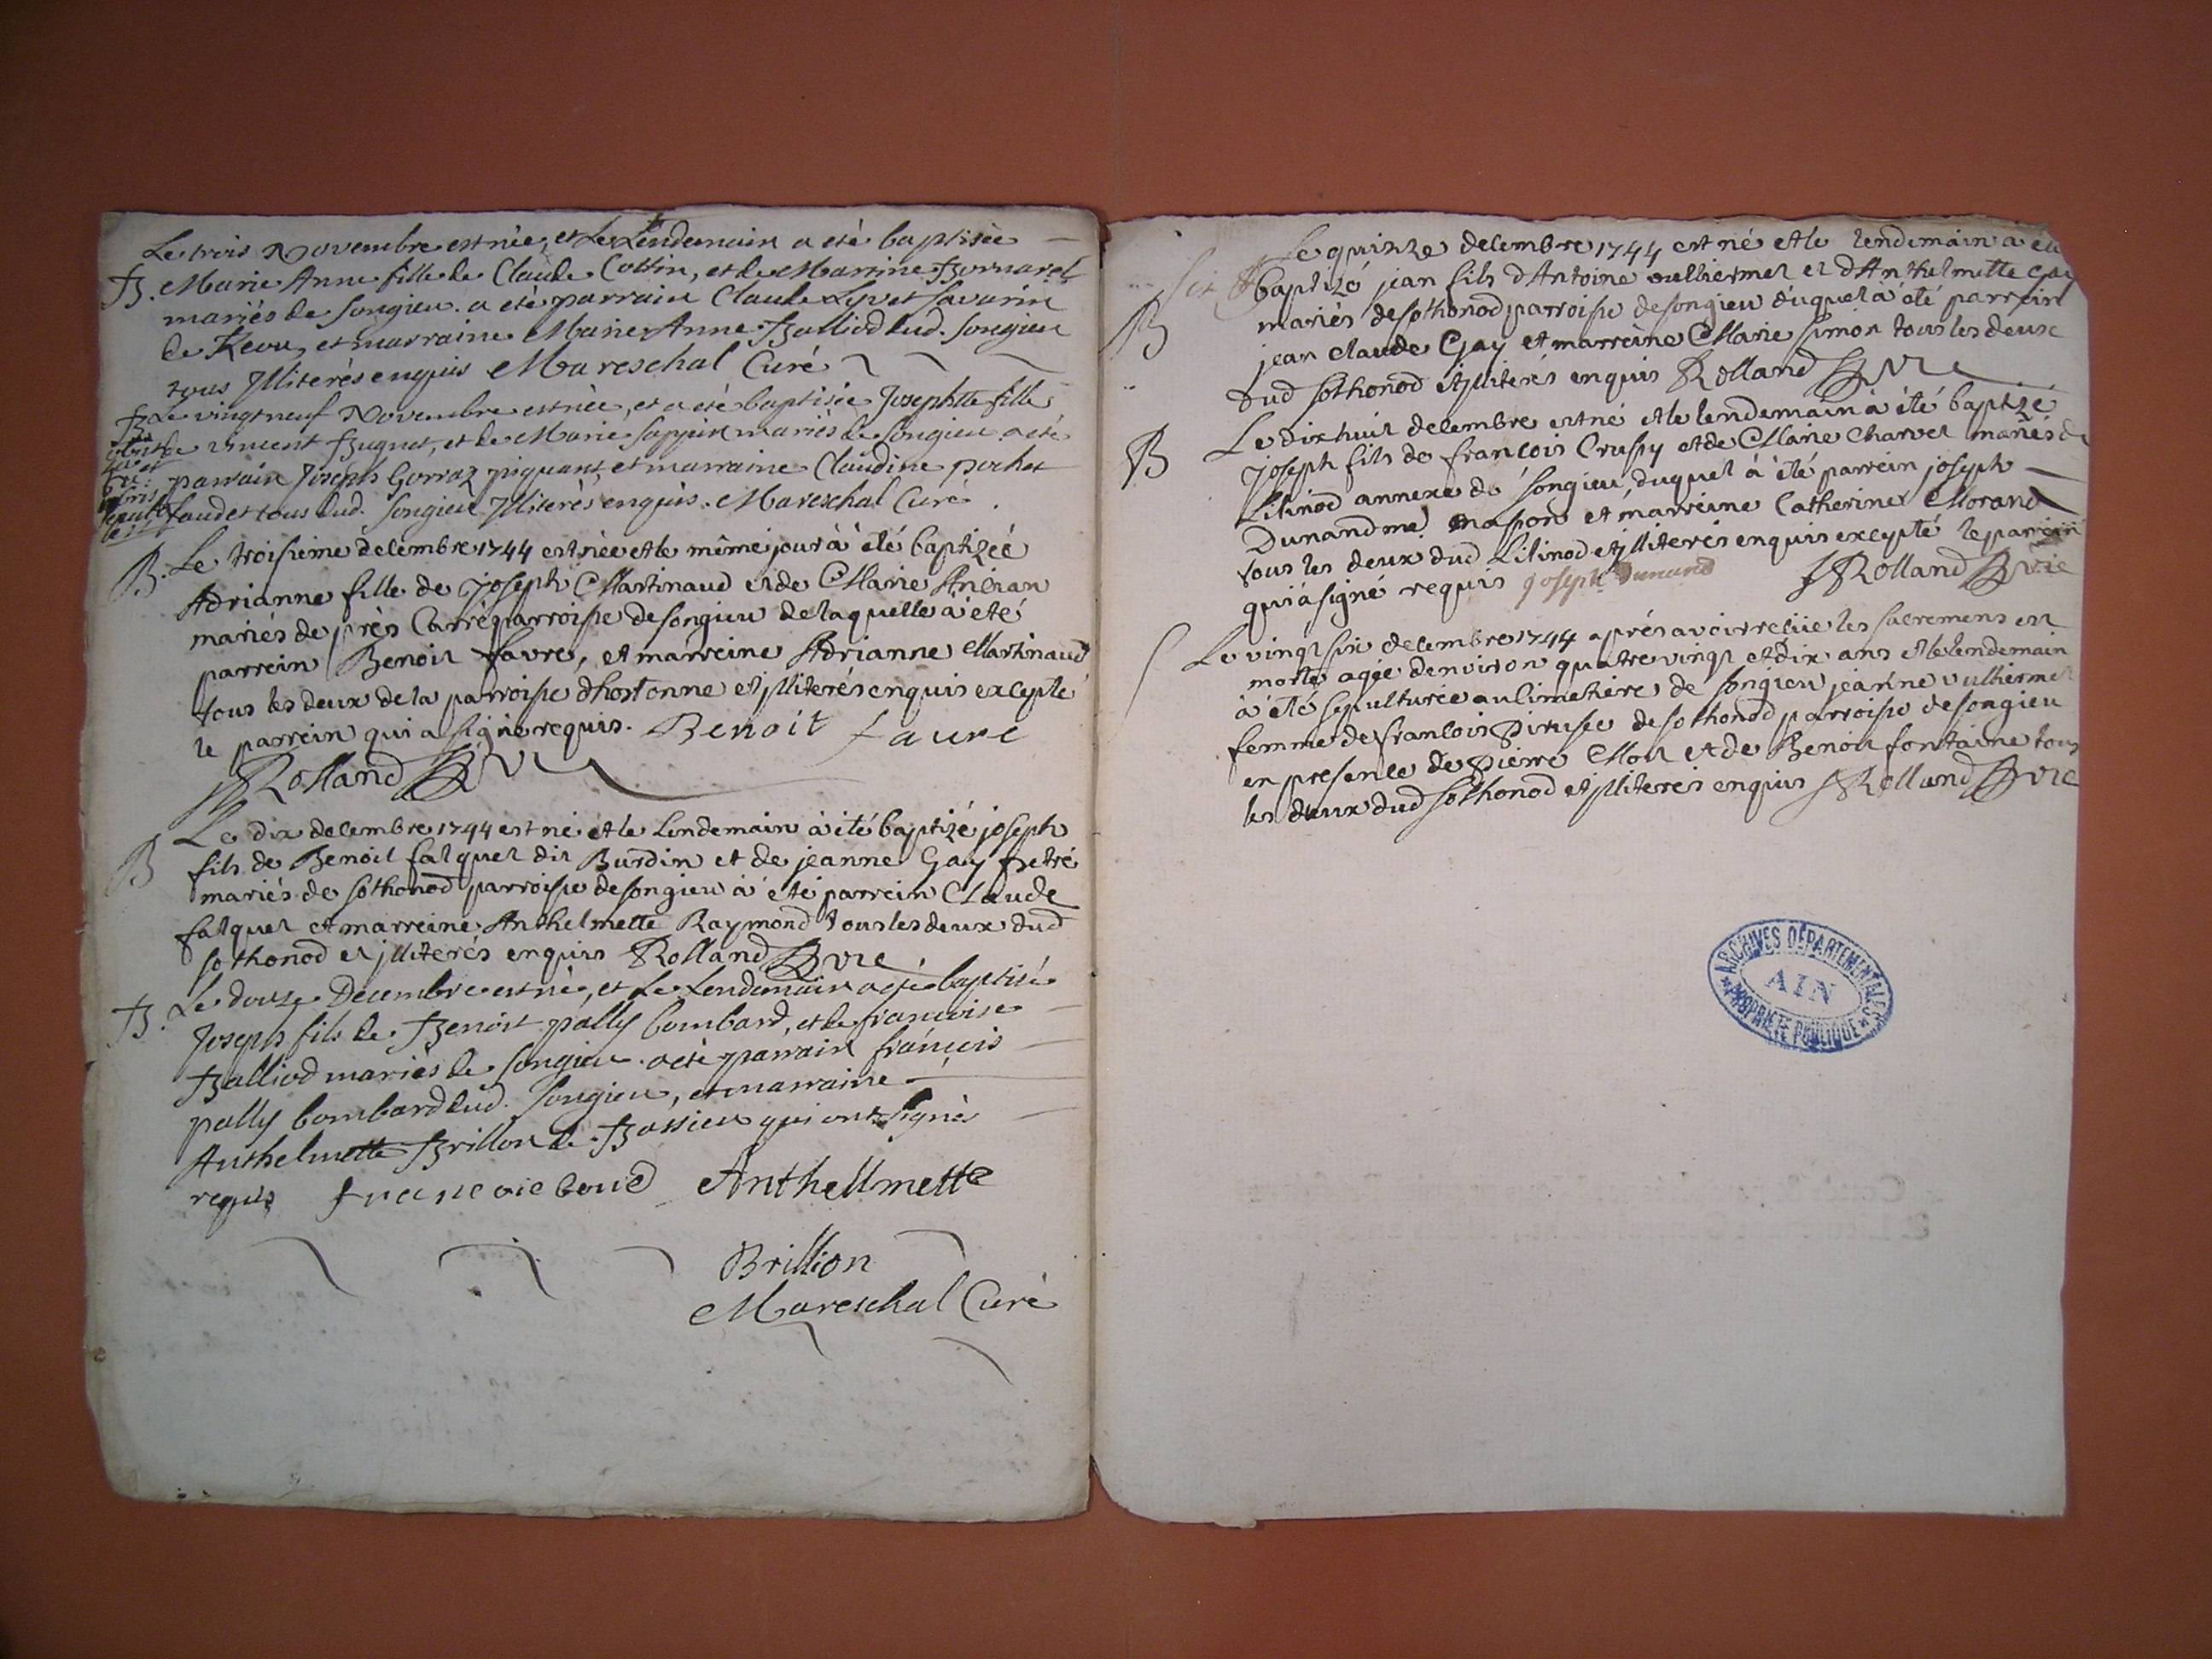 Le trois Novembre est née, et Le Lendemain a eté baptisée
B. Marie Anne fille de Claude Cottin, et de Martine Bornarel
mariés de Songieu. a eté parrain Claude Lyvet Savarin
de et marraine Marie Anne Balliod dud. Songieu
tous Illiterés enquis Mareschal Curé
B Le vingt neuf Novembre est née, et a eté baptisée Josephte fille
de vincent Bugnet, et de Marie Sappin mariés de Songieu a eté
parrain Joseph Gorraz piquant, et marraine Claudine pochet
faudet tous dud. Songieu Illiterés enquis. Mareschal Curé.
B. Le troisieme decembre 1744 est née et le même jour à été baptizée
Adrianne fille de Joseph Martinaud et de Marie Ancian
mariés de près Carré parroisse de songieu de laquelle à eté
parrein Benoit favre, et marreine Adrianne Martinaud
tous les deux de la parroisse dhostonne et jlliterés enquis excepté
le parrein qui a signé requis. Benoit faure
Rolland vic
B Le dix decembre 1744 est né et le Lendemain à été baptizé joseph
fils de Benoit falquet dit Burdin et de jeanne Gay petré
mariés de sothonod parroisse de songieu à eté parrein Claude
falquet et marreine Anthelmette Raymond tous les deux dud
sothonod et jlliterés enquis Rolland vic
B. Le douze Decembre est né, et Le Lendemain a eté baptisé
Joseph fils de Benoist pally bombard, et de francoise
Balliod mariés de Songieu. a eté parrain francois
pally bombard dud. Songieu, et marraine
Anthelmette Brillon de Bassieu qui ont signés
requis Anthellmette
Brillion
Mareschal Curé
Le quinze decembre 1744 est né et le lendemain a été
baptizé jean fils d'Antoine vulliermet et d'Anthelmette Gay
B mariés de sothonod parroisse de songieu duquel à été parrein
jean claude Gay et marreine Marie simon tous les deux
dud sothonod et jlliterés enquis Rolland vic
B Le dix huit decembre est né et le lendemain à été baptizé
joseph fils de francois Crussy et de Marie Charvet mariés de
Lilinod annexe de songieu, duquel à été parrein joseph
Dunand me masson et marreine Catherine Morand
tous les deux dud Lilinod et jlliterés enquis excepté le parrein
qui à signé requis joseph Dunand Rolland vic
S Le vingt six decembre 1744 après avoir reçüe les sacremens est
morte agée denviron quatre vingt et dix ans et le lendemain
à été sepulturée au Cimetière de songieu jeanne vulliermet
femme de francois de sothonod parroisse de songieu
en presence de Pierre Mou et de Benoit fontaine tous
les deux dud sothonod et jlliterés enquis Rolland vic
ARCHIVES DEPARTEMENTALES
AIN
PROPRIETE PUBLIQUE